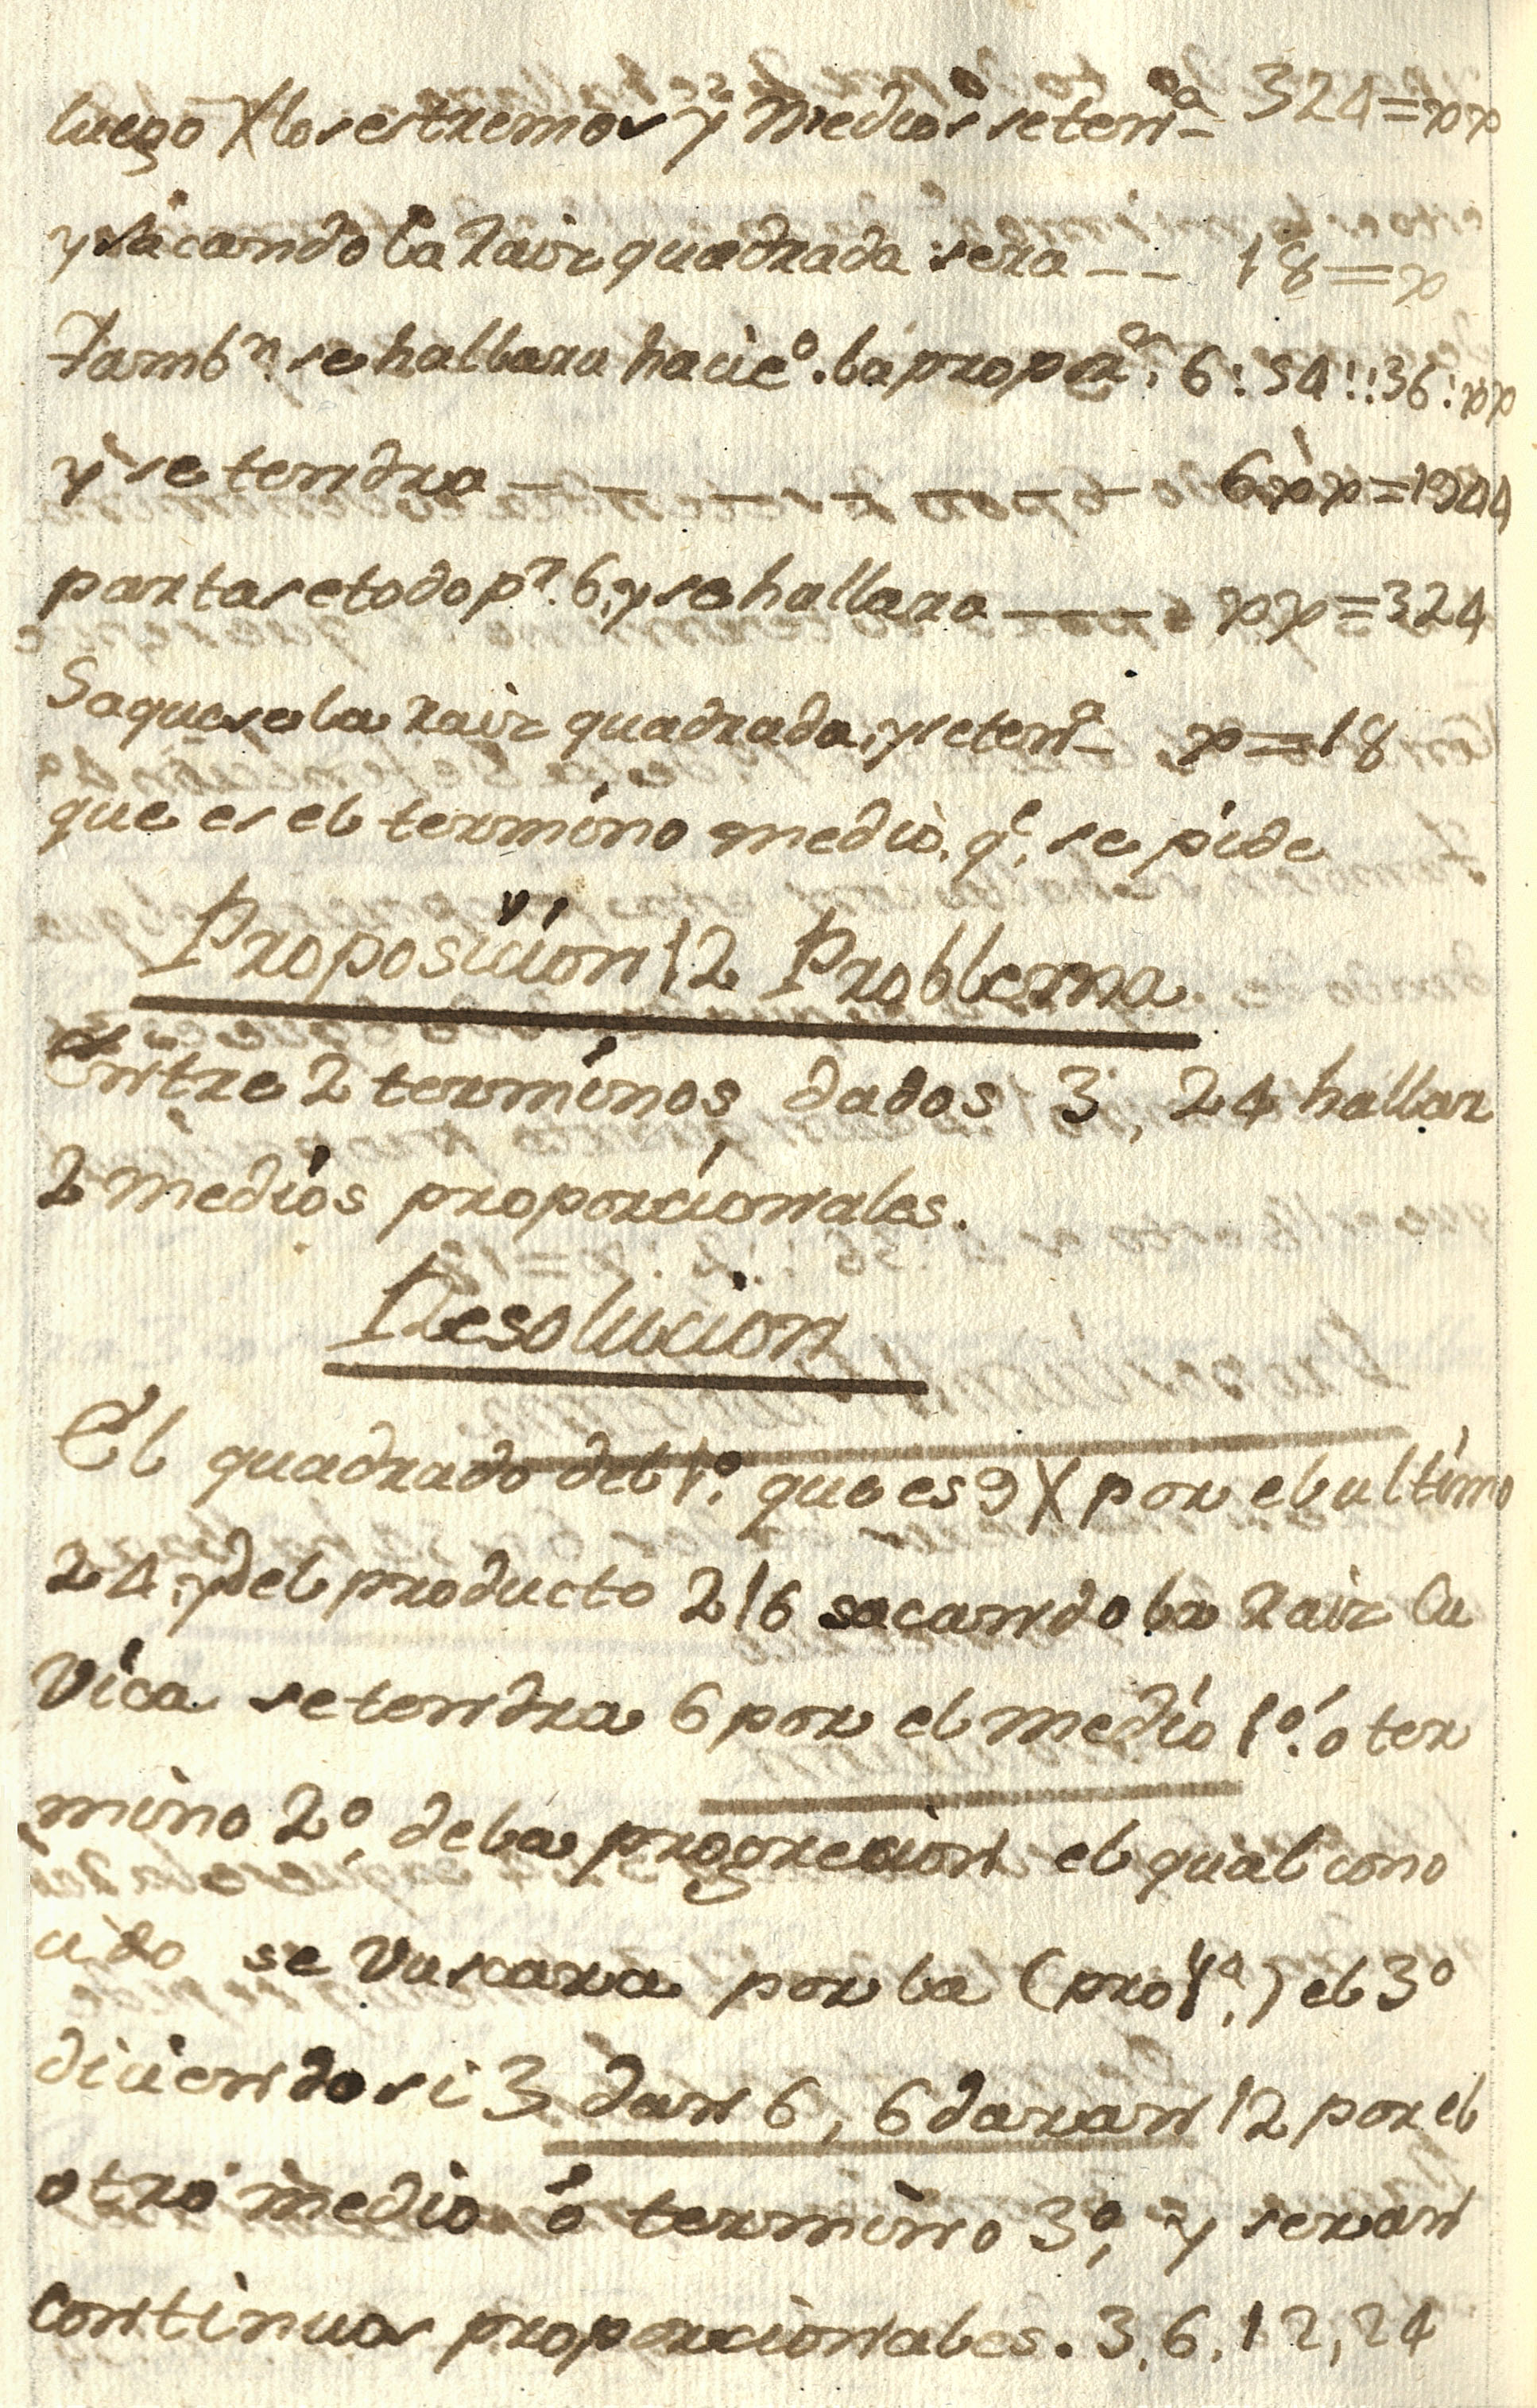 luego X los estremos y medios se ten.ª 324=xx
y sacando la raiz quadrada sera -- 18=x
Tamb.n se hallara hacie.º la propor.on 6:54::36:xx
y se tendra - - - - - - - - 6xx=1944
partase todo p.r 6, y se hallara ---- xx=324
Saquese la raiz quadrada, y se ten.ª x=18
que es el termino medio, q.e se pide
Proposicion 12 Problema
Entre 2 terminos dados 3, 24 hallar
2 medios proporcionales.
Resolucion
El quadrado del 1.º que es 9 X por el ultimo
24, y del producto 216 sacando la raiz Cu
vica se tendra 6 por el medio 1.º ó ter
mino 2.º de la progrecion el qual cono
cido se vuscara por la (pro ª.) el 3º
diciendo si 3 dan 6, 6 daran 12 por el
otro medio ó termino 3º, y seran
continuos proporcionales. 3, 6, 12, 24